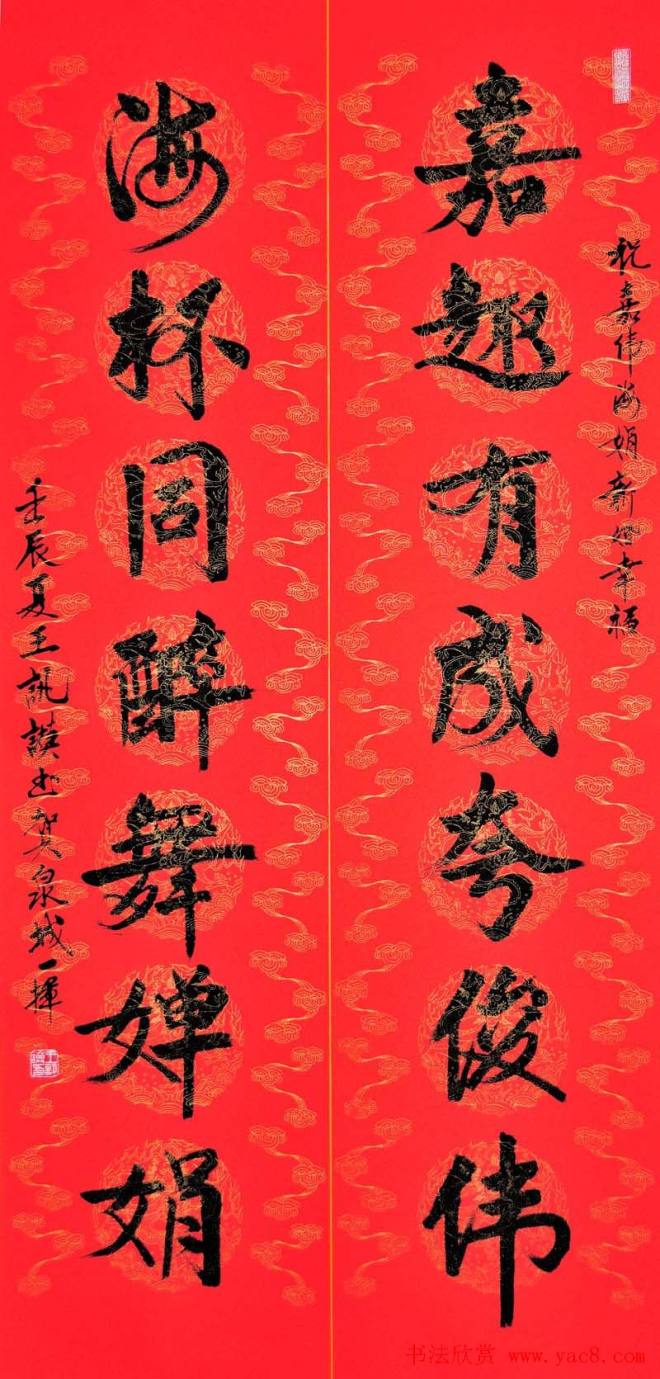 祝嘉伟海娟新婚幸福
嘉趣有成夸俊伟
海杯同醉舞婵娟
壬辰夏王訊谟书贺泉城一挥
书法欣赏 www.yac8.com